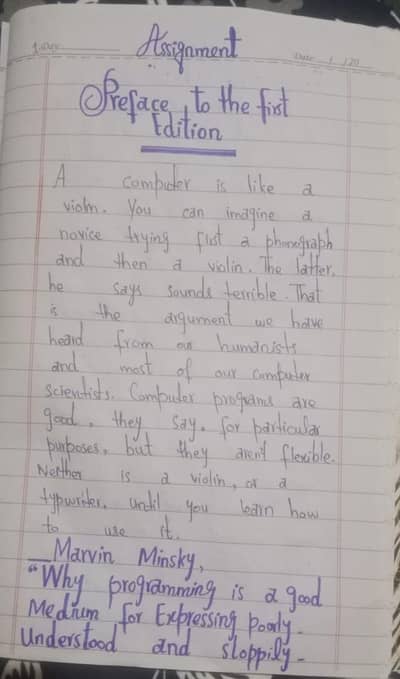 Assignment
Date / /20
Preface to the first
Edition
A computer is like a
violin. You can imagine a
novice trying fist a phonograph
and then a violin. The latter,
he says sounds terrible. That
is the argument we have
heard from our humanists
and most of our computer
scientists. Computer programs are
good, they say, for particular
purposes, but they arent flexible.
Neither is a violin, or a
typwriter, until you learn how
to use it.
Marvin Minsky,
"Why programming is a good
Medium for Expressing poorly-
Understood and sloppily-